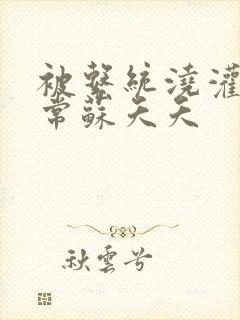 被繫統澆灌
常蘇夭夭
秋雲兮